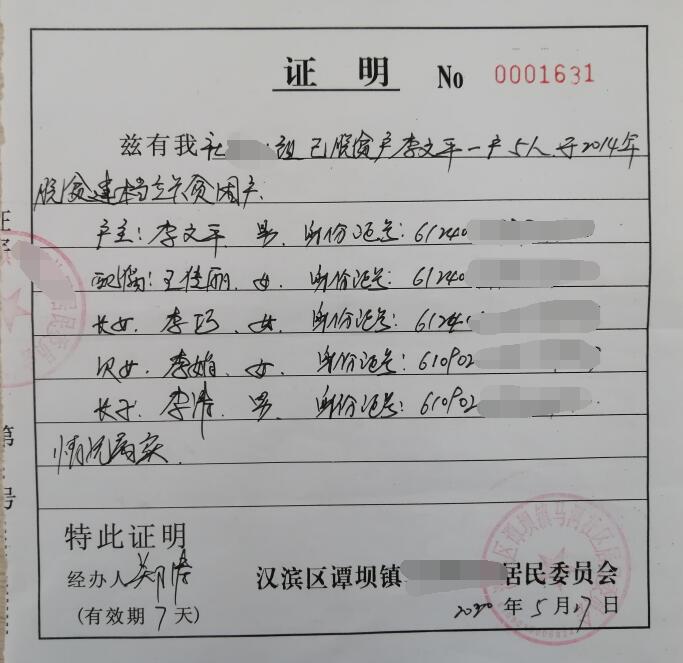 证 明 No 0001631
兹有我社 组 已脱贫户李文平一户5人.于2014年
脱贫建档立卡贫困户
户主:李文平 男. 身份证号:61240
配偶:王佳丽. 女. 身份证号:61240
长女.李巧.女. 身份证号:6124
次女.李娟.女. 身份证号:610902
长子.李涛.男. 身份证号:610902
情况属实.
特此证明
经办人
汉滨区谭坝镇 居民委员会
(有效期7天)
2020年5月17日
第
号